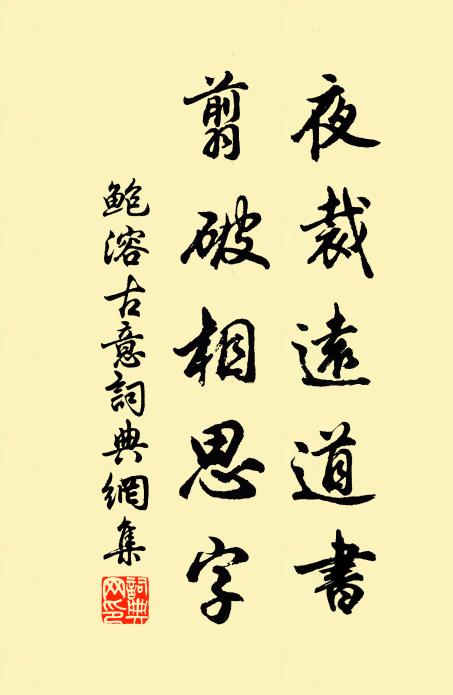 夜裁遠道書
翦破相思字
鮑溶古意詞典網集
詞典網印